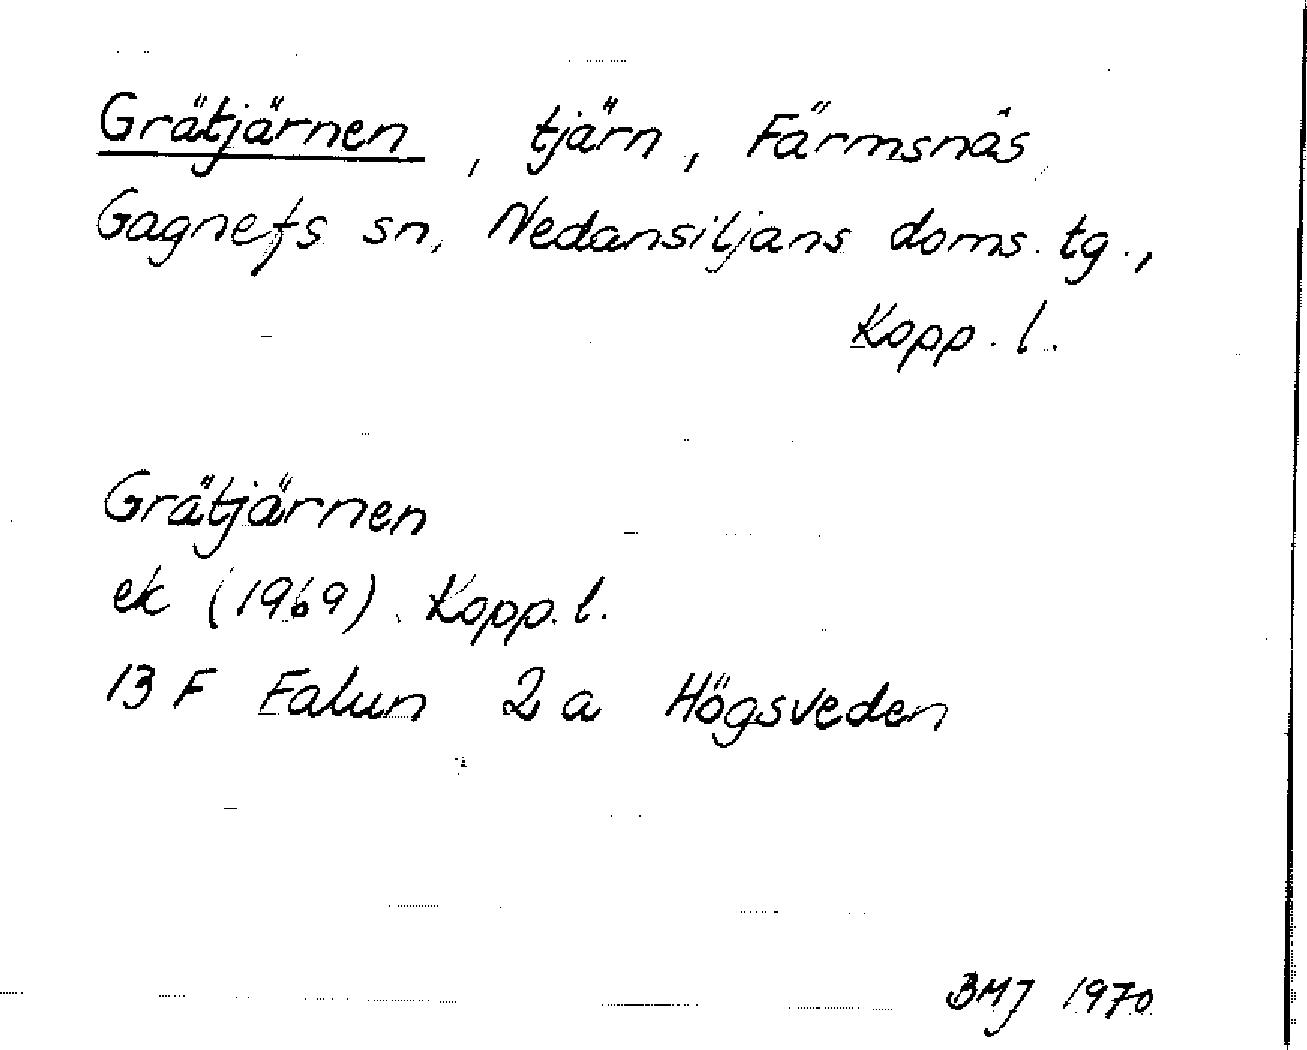 Grätjärnen, tjärn, Färmsnäs
Gagnefs sn, Nedansiljans doms. tg.,
Kopp. l.
Grätjärnen
ek (1969). Kopp. l.
13 F Falun 2 a Högsveden
BMJ 1970